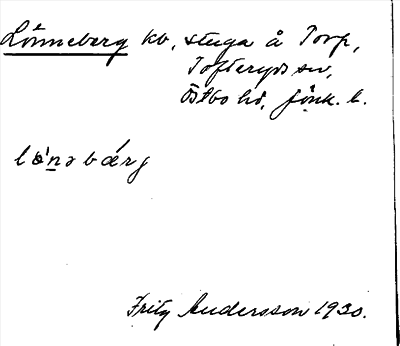 Lönneberg kb, stuga å Torp,
Tofteryds sn,
Östbo hd, Jönk. l.
lö́nəbǽrg
Fritz Andersson 1930.